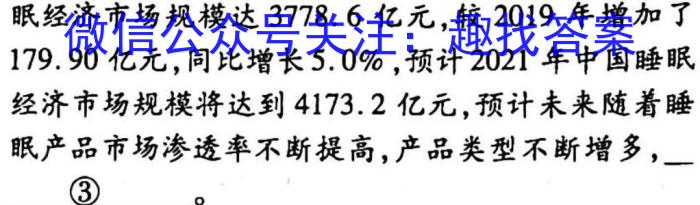 眠经济市场规模达 3778.6 亿元,较 2019 年增加了
微信公众号关注：趣找答案
179.90 亿元,同比增长5.0%,预计2021 年中国睡眠
经济市场规模将达到 4173.2 亿元,预计未来随着睡
眠产品市场渗透率不断提高,产品类型不断增多,__
③ 。